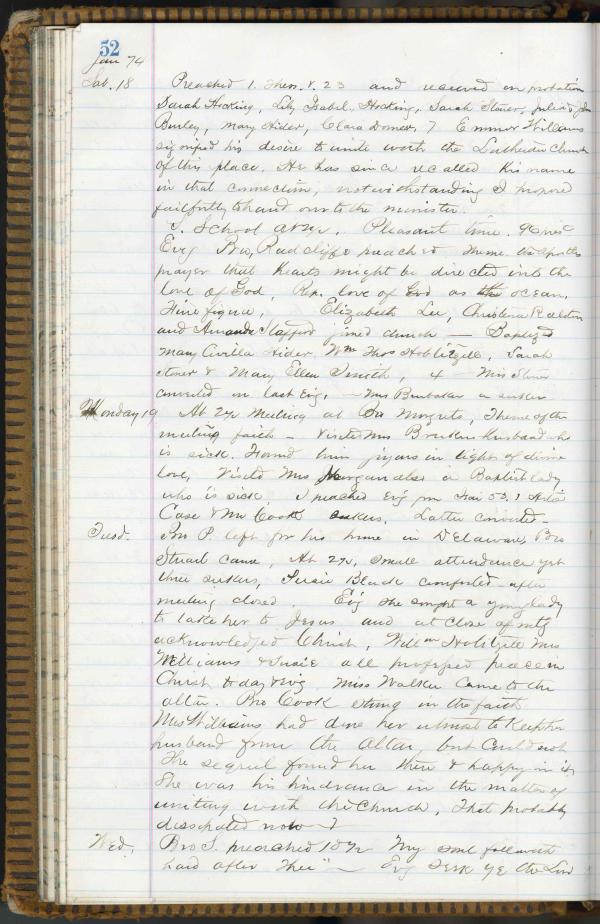 52
Jan 74
Sab. 18 Preached 1. Thess. 5. 23 and received on probation
Sarah Hocking, Lily Isabel Hocking, Sarah Stoner, Julia &
Burley, Mary Hider, Clara Domer, 7 Emma Williams
signified his desire to unite with the Lutheran Church
of this place. He has since recalled his name
in that connection, notwithstanding I proposed
faithfully to hand over to the minister.
S. School at 2½. Pleasant time.
Evg Bro. Radcliffe preached theme the apostles
prayer that hearts might be directed into the
love of God, love of God as the ocean,
Fine figure, Elizabeth Lee, Christina Ralston
and Amanda Stafford joined church — Baptized
Mary Civilla Hider Wm Thos Hoblitzell, Sarah
Stoner & Mary Ellen Smith, 4 — Miss Stoner
converted in last Evg, — Mrs Brubaker a seeker
Monday 19 At 2½ Meeting at Theme of the
meeting faith — Visited Mrs husband who
is sick. Found him joyous in light of divine
love, Visited Mrs Morgan also a Baptist lady
who is sick. I preached Evg from Isai 53. 1
Case & Mr Cook seekers. Latter converted —
Tuesd. Bro P. left for his home in Delaware, Bro
Stuart came, At 2½, small attendance yet
three seekers, Susie Black comforted after
meeting closed. Evg she sought a young lady
to take her to Jesus and at close of mtg
acknowledged Christ, Willm Hoblitzell Mrs
Williams & Susie all professed peace in
Christ to day & Evg. Miss Walker came to the
altar. Bro Cook strong in the faith
Mrs Williams had done her utmost to keep her
husband from the altar, but could not
The sequel found her there & happy in it,
She was his hindrance in the matter of
uniting with the Church, That probably
dissipated now —
Wed. Bro S. preached 10½ "My soul followeth
hard after Thee" — Evg Seek ye the Lord